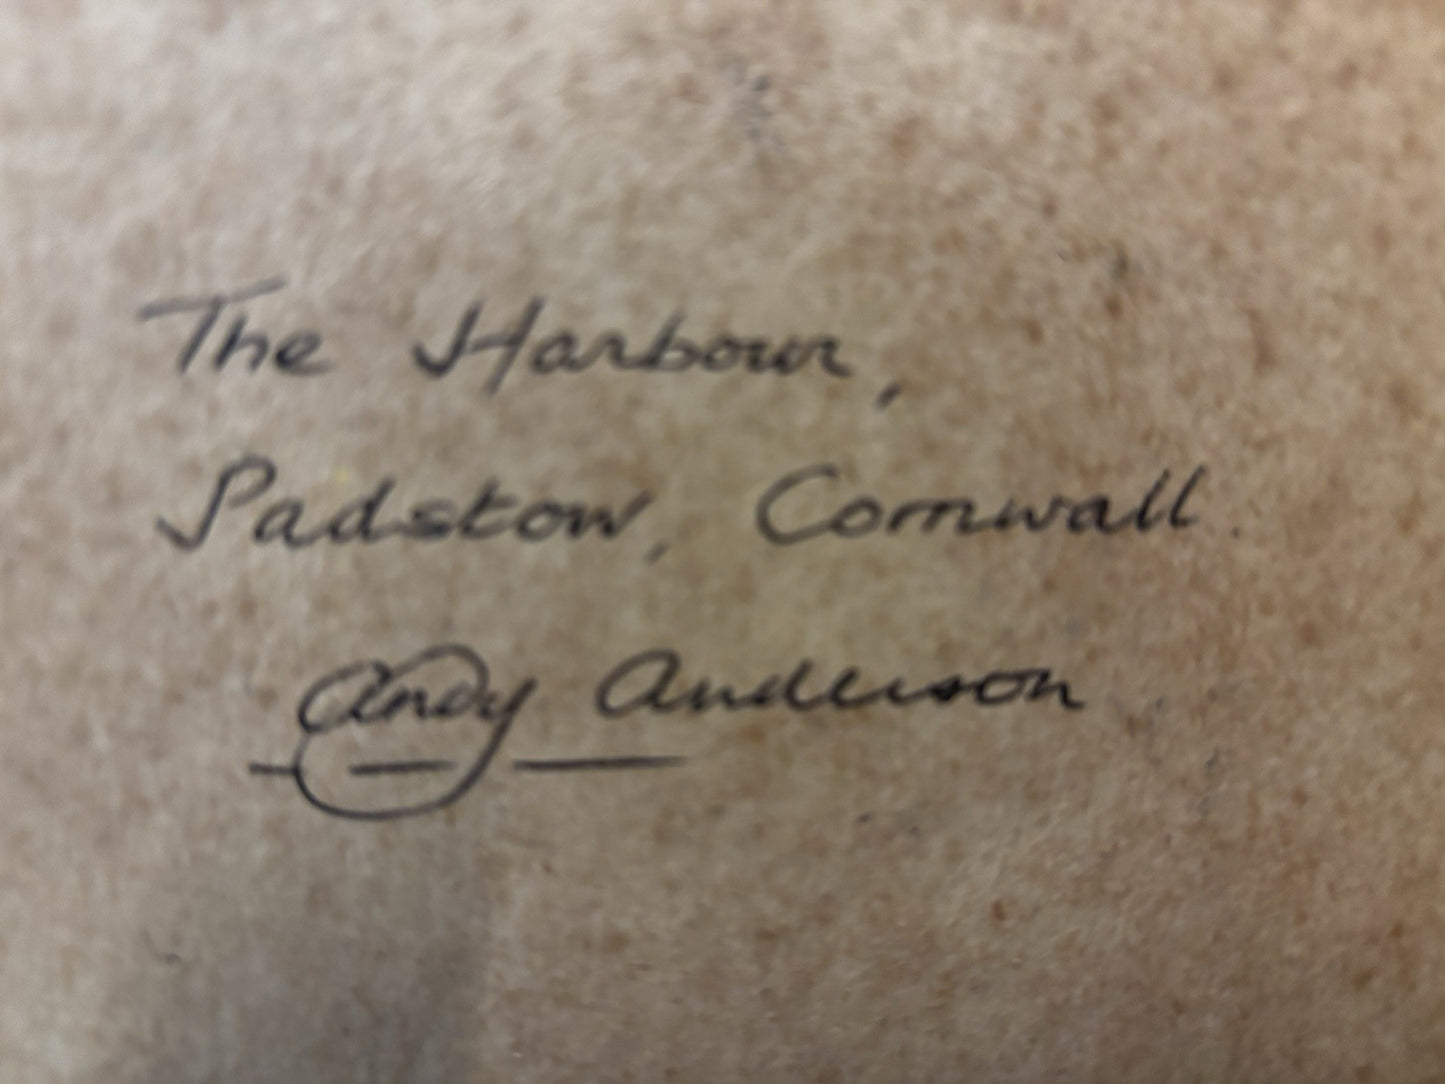 The Harbour,
Padstow, Cornwall.
Andy Anderson